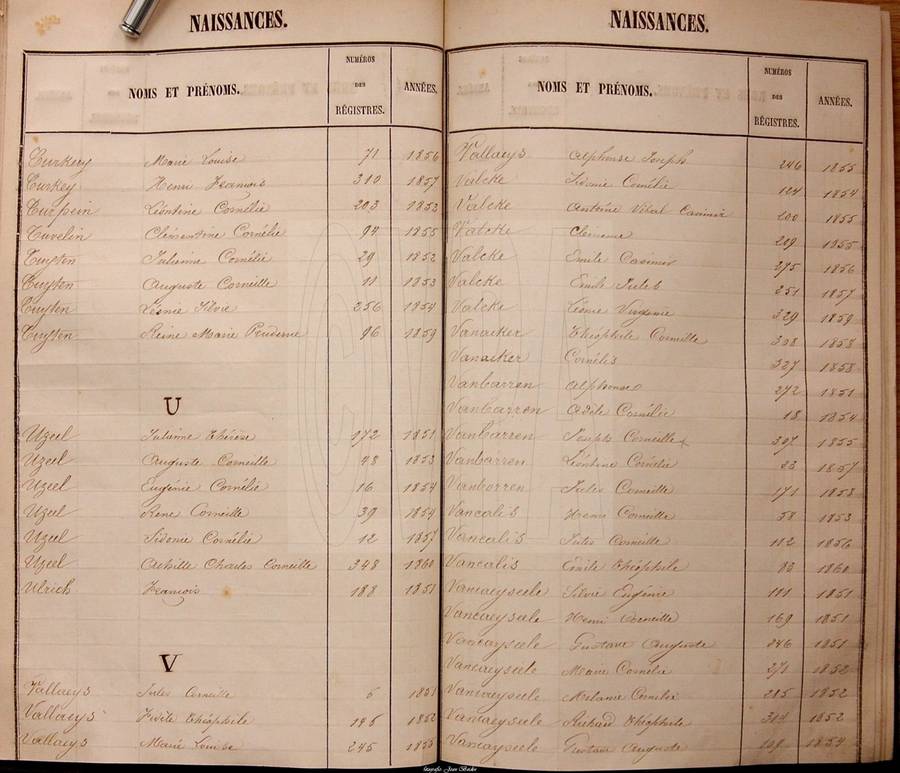 NAISSANCES.
NOMS ET PRÉNOMS. NUMÉROS DES RÉGISTRES. ANNÉES.
Turkery Marie Louise 71 1856
Turkey Henri François 310 1857
Turpein Léontine Cornélie 203 1853
Tuvelin Clémentine Cornélie 94 1855
Tuyten Julienne Cornélie 29 1852
Tuyten Auguste Corneille 11 1853
Tuyten Léonie Silvie 256 1854
Tuyten Reine Marie Prudence 96 1859
U
Uzeel Julienne Thérèse 172 1851
Uzeel Auguste Corneille 48 1853
Uzeel Eugénie Cornélie 16 1854
Uzeel René Corneille 39 1854
Uzeel Sidonie Cornélie 12 1857
Uzeel Achille Charles Corneille 348 1860
Ulrich François 188 1851
V
Vallaeys Jules Corneille 5 1851
Vallaeys Théophile 1852
Vallaeys Marie Louise 245 1855
NAISSANCES.
NOMS ET PRÉNOMS. NUMÉROS DES RÉGISTRES. ANNÉES.
Vallaeys Alphonse Joseph 246 1855
Valcke Sidonie Cornélie 124 1854
Valcke Antoine Vital Casimir 200 1855
Valcke Clémence 209 1855
Valcke Emile Casimir 275 1856
Valcke Emile Jules 251 1857
Valcke Léonie Virginie 329 1859
Vanacker Théophile Corneille 308 1858
Vanacker Cornélis 327 1858
Vanbarren Alphonse 272 1851
Vanbarren Adèle Cornélie 18 1854
Vanbarren Joseph Corneille 307 1855
Vanbarren Léontine Cornélie 23 1857
Vanborren Jules Corneille 171 1853
Vancalis Henri Corneille 58 1853
Vancalis Jules Corneille 112 1856
Vancalis Emile Théophile 83 1860
Vancayseele Silvie Eugénie 111 1851
Vancayseele Henri Corneille 169 1851
Vancayseele Gustave Auguste 246 1851
Vancayseele Marie Cornélie 271 1852
Vancayseele Mélanie Cornélie 285 1852
Vancayseele Richard Théophile 304 1852
Vancayseele Gustave Auguste 1854